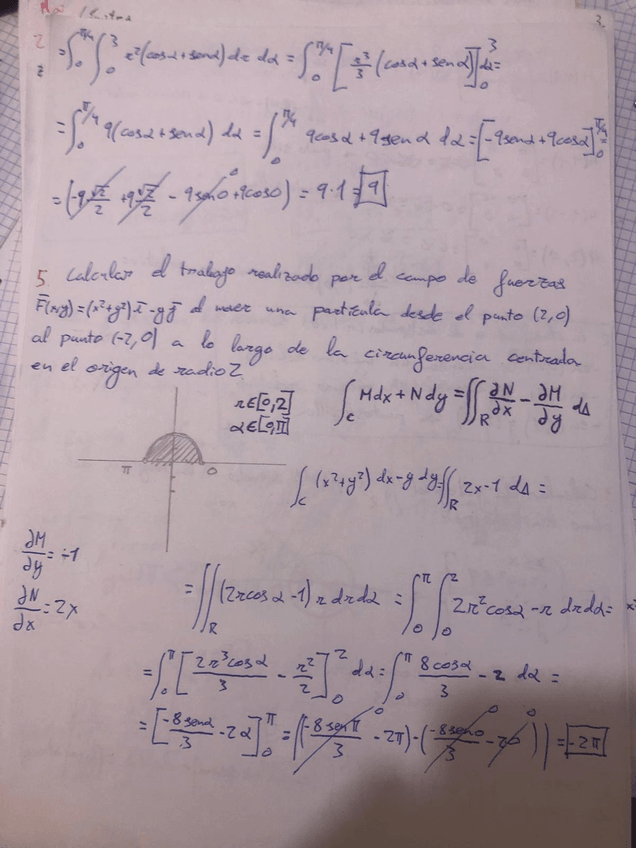 2
= ∫₀^{π/4} ∫₀³ r²(cosα+senα) dr dα = ∫₀^{π/4} [r³/3 (cosα+senα)]₀³ dα =
= ∫₀^{π/4} 9(cosα+senα) dα = ∫₀^{π/4} 9cosα+9senα dα = [-9senα+9cosα]₀^{π/4} =
= (-9√2/2 + 9√2/2 - 9sen0 + 9cos0) = 9·1 = 9
5 Calcular el trabajo realizado por el campo de fuerzas
F̄(x,y)=(x²+y²)·ī-yj̄ al mover una partícula desde el punto (2,0)
al punto (-2,0) a lo largo de la circunferencia centrada
en el origen de radio 2.
r∈[0,2]
α∈[0,π]
∫_C Mdx+Ndy = ∬_R ∂N/∂x - ∂M/∂y dA
π 0
∫_C (x²+y²) dx-y dy = ∬_R 2x-1 dA =
∂M/∂y = -1
∂N/∂x = 2x
= ∬_R (2rcosα-1) r dr dα = ∫₀^π ∫₀² 2r²cosα-r dr dα =
= ∫₀^π [2r³cosα/3 - r²/2]₀² dα = ∫₀^π 8cosα/3 - 2 dα =
= [-8senα/3 - 2α]₀^π = ((-8senπ/3 - 2π) - (-8sen0/3 - 20)) = -2π